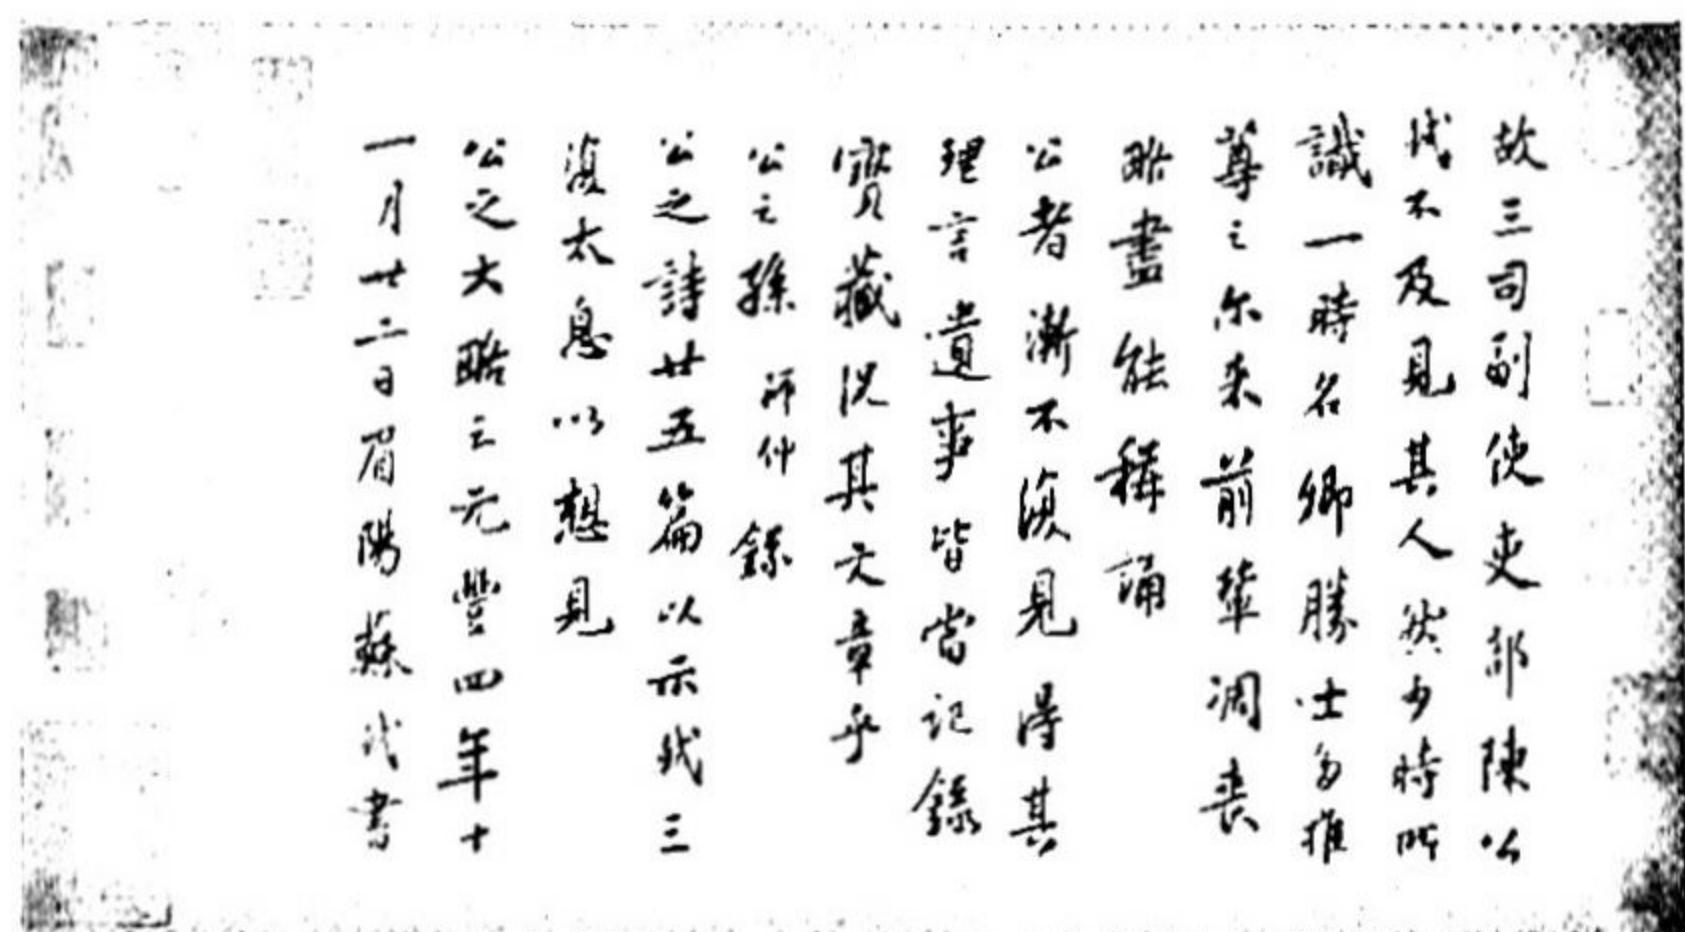 故三司副使吏部陳公
軾不及見其人然少時所
識一時名卿勝士多推
尊之尓來前輩凋喪
略盡能稱誦
公者漸不復見得其
理言遺事皆當記錄
寶藏況其文章乎
公之孫師仲錄
公之詩廿五篇以示軾三
復太息以想見
公之大略云元豐四年十
一月廿二日眉陽蘇軾書